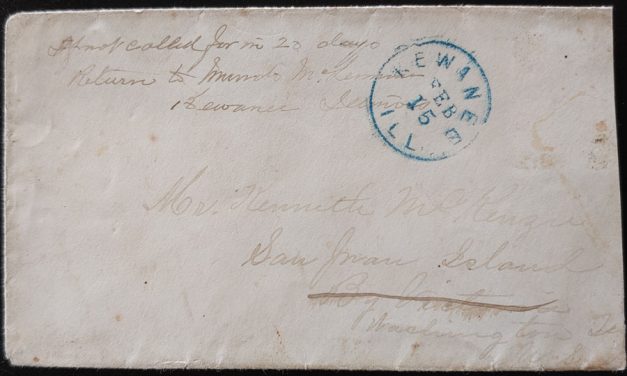 If not called for in 20 days
Return to Mc Kenzie
Kewanee Illinois
KEWANEE
FEB
15
ILL
Mr. Kenneth McKenzie
San Juan Island
By Victoria
Washington